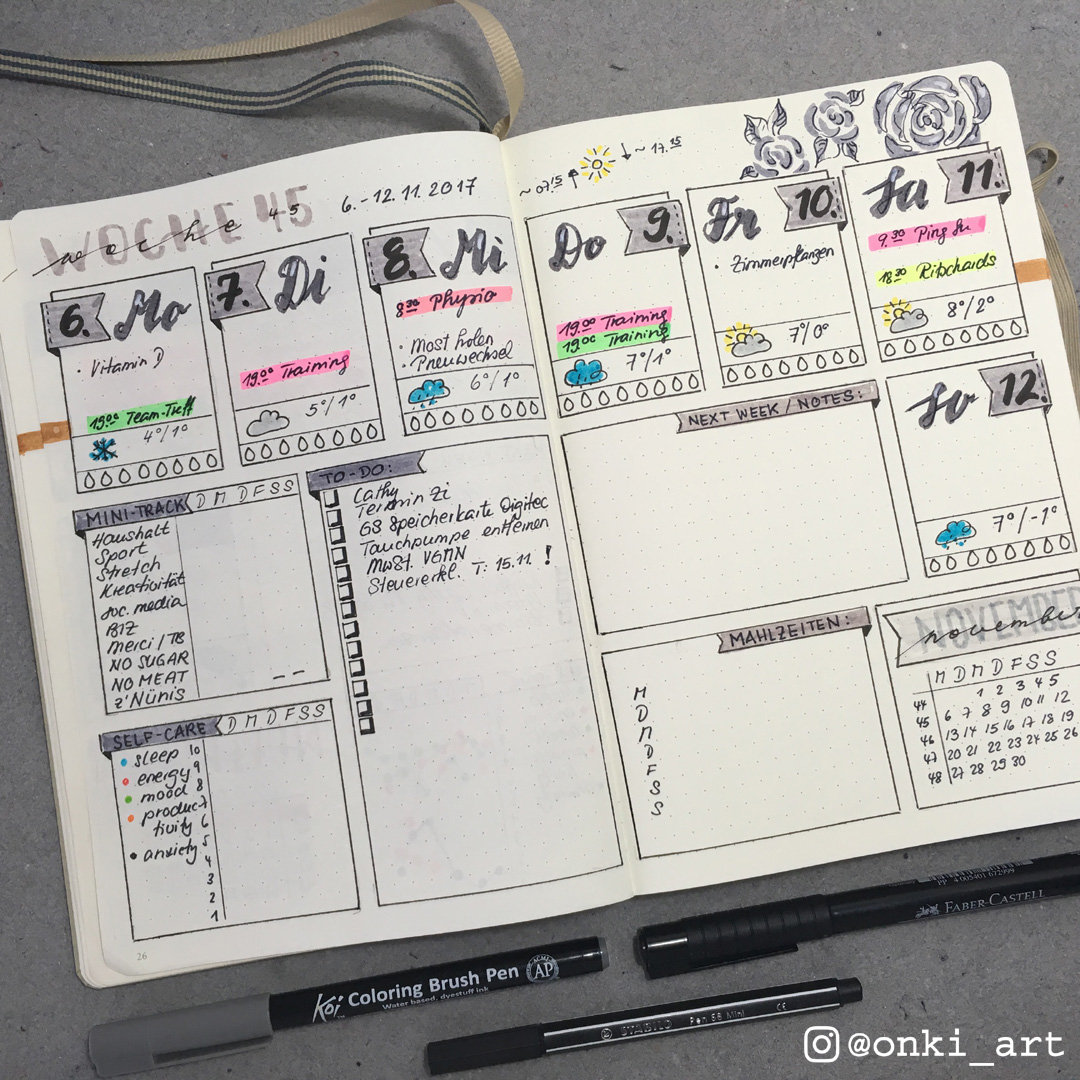 WOCHE 45
woche 45
6. - 12. 11. 2017
~ 07.15
~ 17.15
6. Mo
· Vitamin D
19.00 Team-Treff
4°/1°
7. Di
19.00 Training
5°/1°
8. Mi
8.30 Physio
· Most holen
· Pneuwechsel
6°/1°
Do 9.
19.00 Training
19.00 Training
7°/1°
Fr 10.
· Zimmerpflanzen
7°/0°
Sa 11.
9.30 Ping
18.30
8°/2°
So 12.
7°/-1°
MINI-TRACK D M D F S S
Haushalt
Sport
Stretch
Kreativität
soc. media
Merci / TB
NO SUGAR
NO MEAT
z'Nünis
TO-DO:
Cathy
Termin Zi
GS Speicherkarte Digitec
Tauchpumpe entfernen
MwSt. VGMN
Steuererkl. T: 15.11. !
SELF-CARE D M D F S S
sleep 10
energy 9
mood 8
produc- 7
tivity 6
anxiety 5
4
3
2
1
NEXT WEEK / NOTES:
MAHLZEITEN:
M
D
M
D
F
S
S
NOVEMBER
november
M D M D F S S
44 1 2 3 4 5
45 6 7 8 9 10 11 12
46 13 14 15 16 17 18 19
47 20 21 22 23 24 25 26
48 27 28 29 30
26
Koi Coloring Brush Pen
Water based, dyestuff ink
ACMI AP
FABER-CASTELL
PP 4 005401 672999
STABILO Pen 68 Mini CE
@onki_art